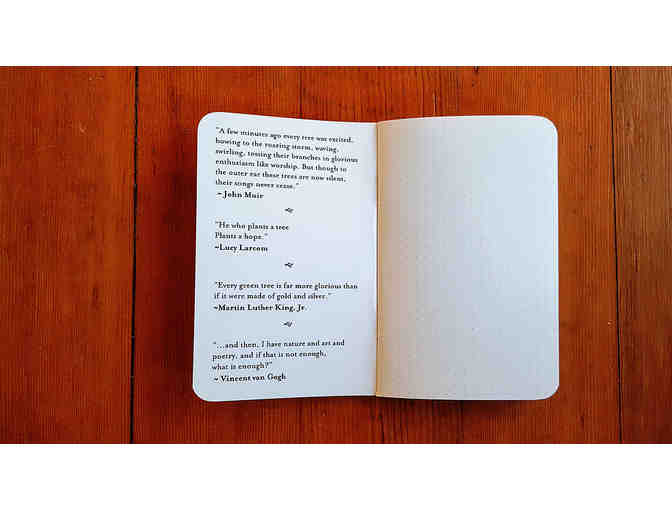 "A few minutes ago every tree was excited,
bowing to the roaring storm, waving,
swirling, tossing their branches in glorious
enthusiasm like worship. But though to
the outer ear these trees are now silent,
their songs never cease."
~ John Muir
"He who plants a tree
Plants a hope."
~Lucy Larcom
"Every green tree is far more glorious than
if it were made of gold and silver."
~Martin Luther King, Jr.
"...and then, I have nature and art and
poetry, and if that is not enough,
what is enough?"
~ Vincent van Gogh